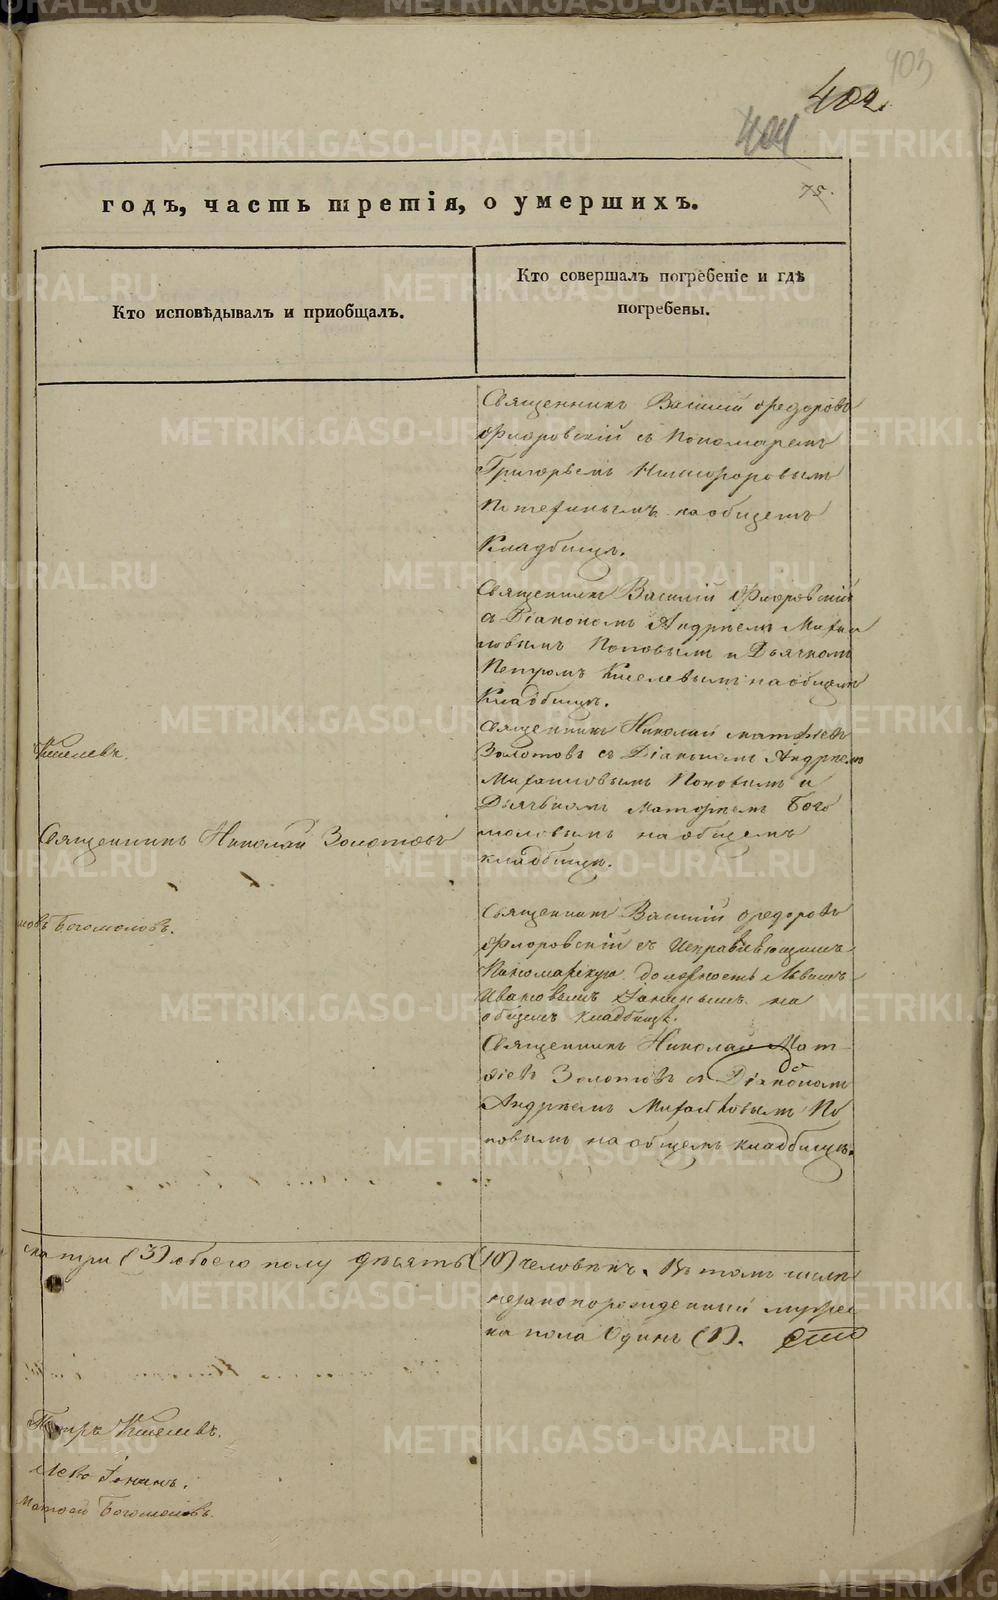 403
402.
404
75.
годъ, часть третія, о умершихъ.
Кто исповѣдывалъ и приобщалъ.
Кто совершалъ погребеніе и гдѣ
погребены.
Священникъ Василій Ѳедоровъ
Флоровскій съ Пономаремъ
Григорьемъ Никифоровымъ
на общемъ
Кладбищѣ.
Священникъ Василій Флоровскій
съ Діакономъ Андреемъ Михаи
ловымъ Поповымъ и Дьячкомъ
Петромъ Киселевымъ на общемъ
Кладбищѣ.
Киселевъ.
Священникъ Николай Матѳіевъ
Золотовъ съ Діакономъ Андреемъ
Михаиловымъ Поповымъ и
Дьячкомъ Матѳеемъ Бого
моловымъ на общемъ
кладбищѣ.
Священникъ Николай Золотовъ
мовъ Богомоловъ.
Священникъ Василій Ѳедоровъ
Флоровскій съ Исправляющимъ
Пономарскую должность Львомъ
Ивановымъ на
общемъ кладбищѣ.
Священникъ Николай Мат
ѳіевъ Золотовъ съ Діакономъ
Андреемъ Михаиловымъ По
повымъ на общемъ кладбищѣ.
ска три (3) обоего полу девять (10) человѣкъ. Въ томъ числѣ
незаконорожденный мужес
ка пола Одинъ (1).
Петръ Киселевъ.
Левъ
Матѳей Богомоловъ.
METRIKI.GASO-URAL.RU